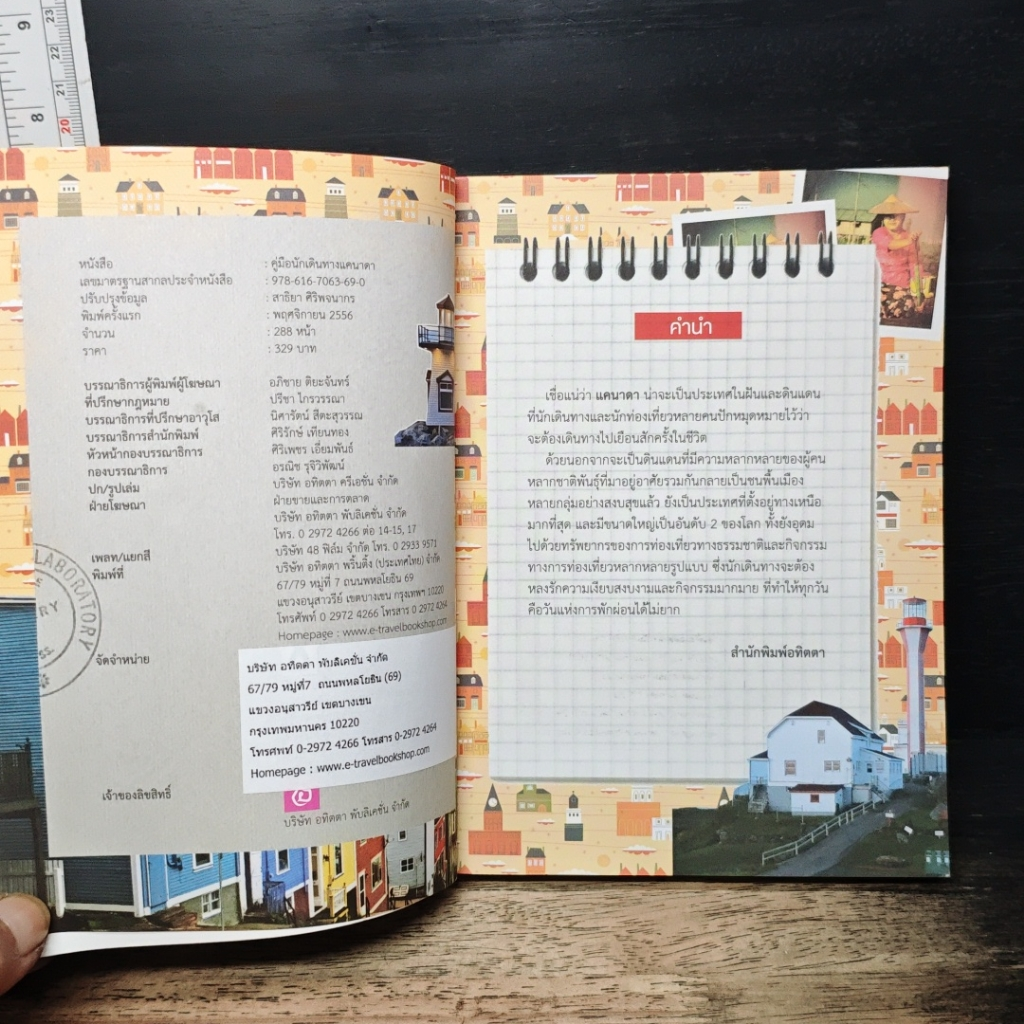 หนังสือ : คู่มือนักเดินทางแคนาดา
เลขมาตรฐานสากลประจำหนังสือ : 978-616-7063-69-0
ปรับปรุงข้อมูล : สาธิยา ศิริพจนากร
พิมพ์ครั้งแรก : พฤศจิกายน 2556
จำนวน : 288 หน้า
ราคา : 329 บาท
บรรณาธิการผู้พิมพ์ผู้โฆษณา อภิชาย ติยะจันทร์
ที่ปรึกษากฎหมาย ปรีชา ไกรวรรณา
บรรณาธิการที่ปรึกษาอาวุโส นิศารัตน์ สีตะสุวรรณ
บรรณาธิการสำนักพิมพ์ ศิริรักษ์ เทียนทอง
หัวหน้ากองบรรณาธิการ ศิริเพชร เอี่ยมพันธ์
กองบรรณาธิการ อรณิช รุจิวิพัฒน์
ปก/รูปเล่ม บริษัท อทิตตา ครีเอชั่น จำกัด
ฝ่ายโฆษณา ฝ่ายขายและการตลาด
บริษัท อทิตตา พับลิเคชั่น จำกัด
โทร. 0 2972 4266 ต่อ 14-15, 17
เพลท/แยกสี บริษัท 48 ฟิล์ม จำกัด โทร. 0 2933 9571
พิมพ์ที่ บริษัท อทิตตา พริ้นติ้ง (ประเทศไทย) จำกัด
67/79 หมู่ที่ 7 ถนนพหลโยธิน 69
แขวงอนุสาวรีย์ เขตบางเขน กรุงเทพฯ 10220
โทรศัพท์ 0 2972 4266 โทรสาร 0 2972 4264
Homepage : www.e-travelbookshop.com
จัดจำหน่าย บริษัท อทิตตา พับลิเคชั่น จำกัด
67/79 หมู่ที่7 ถนนพหลโยธิน (69)
แขวงอนุสาวรีย์ เขตบางเขน
กรุงเทพมหานคร 10220
โทรศพท์ 0-2972 4266 โทรสาร 0-2972 4264
Homepage : www.e-travelbookshop.com
เจ้าของลิขสิทธิ์
บริษัท อทิตตา พับลิเคชั่น จำกัด
LABORATORY
คำนำ
เชื่อแน่ว่า แคนาดา น่าจะเป็นประเทศในฝันและดินแดน
ที่นักเดินทางและนักท่องเที่ยวหลายคนปักหมุดหมายไว้ว่า
จะต้องเดินทางไปเยือนสักครั้งในชีวิต
ด้วยนอกจากจะเป็นดินแดนที่มีความหลากหลายของผู้คน
หลากชาติพันธุ์ที่มาอยู่อาศัยรวมกันกลายเป็นชนพื้นเมือง
หลายกลุ่มอย่างสงบสุขแล้ว ยังเป็นประเทศที่ตั้งอยู่ทางเหนือ
มากที่สุด และมีขนาดใหญ่เป็นอันดับ 2 ของโลก ทั้งยังอุดม
ไปด้วยทรัพยากรของการท่องเที่ยวทางธรรมชาติและกิจกรรม
ทางการท่องเที่ยวหลากหลายรูปแบบ ซึ่งนักเดินทางจะต้อง
หลงรักความเงียบสงบงามและกิจกรรมมากมาย ที่ทำให้ทุกวัน
คือวันแห่งการพักผ่อนได้ไม่ยาก
สำนักพิมพ์อทิตตา
9
8
23
22
21
20